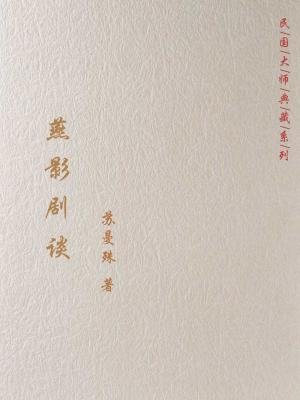 民|国|大|师|典|藏|系|列
燕影剧谈
苏曼殊 著